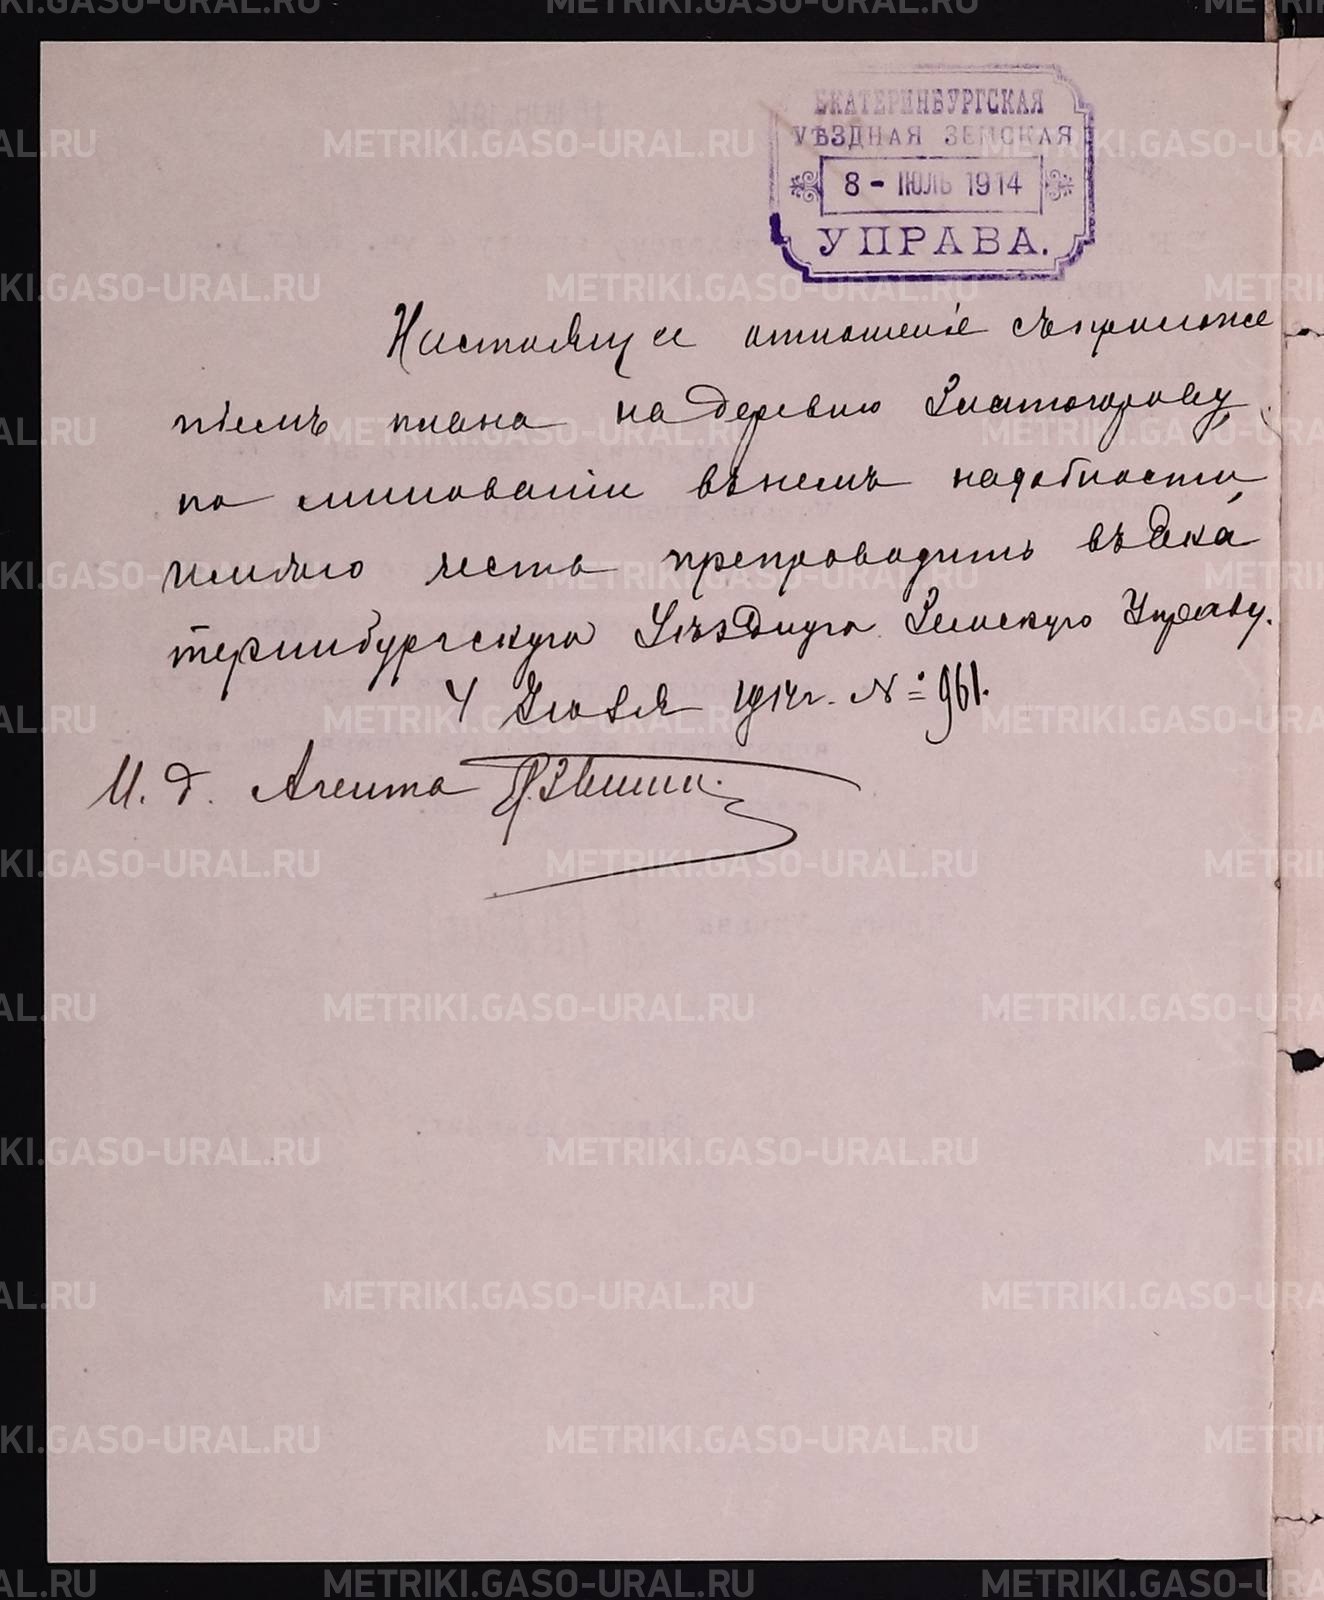 ЕКАТЕРИНБУРГСКАЯ
УѢЗДНАЯ ЗЕМСКАЯ
8 - ІЮЛЬ 1914
УПРАВА.
Настоящее отношеніе съ приложе
ніемъ плана на деревню Златогорову,
по минованіи въ немъ надобности,
имѣю честь препроводить въ Ека
теринбургскую Уѣздную Земскую Управу.
4 Іюля 1914 г. № 961.
И. д. Агента
METRIKI.GASO-URAL.RU